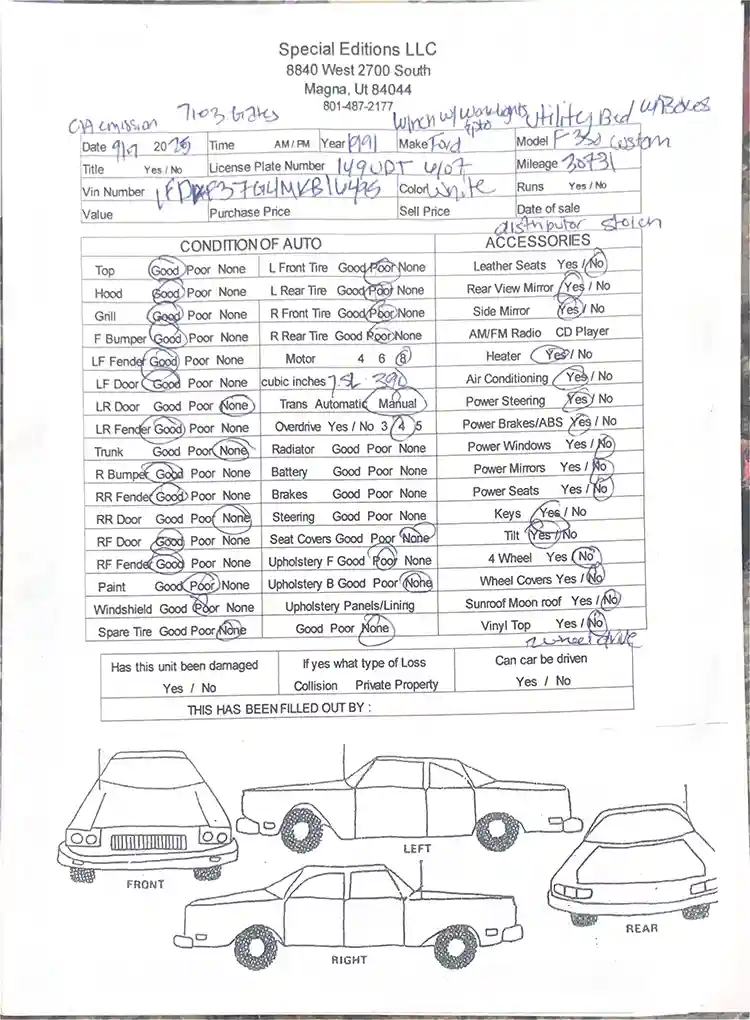 Special Editions LLC
8840 West 2700 South
Magna, Ut 84044
801-487-2177
CA emission 7103 Gates Winch w/ Worklights Utility Bed w/Boxes
Date 9/17 2025 Time AM / PM Year 1991 Make Ford Model F350 Custom
Title Yes / No License Plate Number 149UDT 6/07 Mileage 30731
Vin Number Color White Runs Yes / No
Value Purchase Price Sell Price Date of sale
distributor stolen
CONDITION OF AUTO ACCESSORIES
Top Good Poor None L Front Tire Good Poor None Leather Seats Yes / No
Hood Good Poor None L Rear Tire Good Poor None Rear View Mirror Yes / No
Grill Good Poor None R Front Tire Good Poor None Side Mirror Yes / No
F Bumper Good Poor None R Rear Tire Good Poor None AM/FM Radio CD Player
LF Fender Good Poor None Motor 4 6 8 Heater Yes / No
LF Door Good Poor None cubic inches 7.5L Air Conditioning Yes / No
LR Door Good Poor None Trans Automatic Manual Power Steering Yes / No
LR Fender Good Poor None Overdrive Yes / No 3 4 5 Power Brakes/ABS Yes / No
Trunk Good Poor None Radiator Good Poor None Power Windows Yes / No
R Bumper Good Poor None Battery Good Poor None Power Mirrors Yes / No
RR Fender Good Poor None Brakes Good Poor None Power Seats Yes / No
RR Door Good Poor None Steering Good Poor None Keys Yes / No
RF Door Good Poor None Seat Covers Good Poor None Tilt Yes / No
RF Fender Good Poor None Upholstery F Good Poor None 4 Wheel Yes No
Paint Good Poor None Upholstery B Good Poor None Wheel Covers Yes / No
Windshield Good Poor None Upholstery Panels/Lining Sunroof Moon roof Yes / No
Spare Tire Good Poor None Good Poor None Vinyl Top Yes / No
2 wheel drive
Has this unit been damaged If yes what type of Loss Can car be driven
Yes / No Collision Private Property Yes / No
THIS HAS BEEN FILLED OUT BY :
LEFT
FRONT
REAR
RIGHT